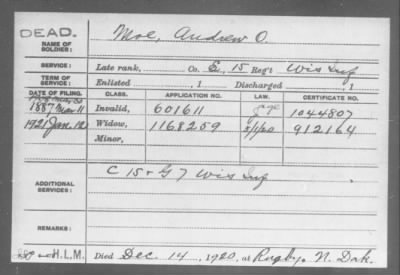 DEAD.
NAME OF SOLDIER: Moe, Andrew O.
SERVICE: Late rank, Co. E, 15 Reg't Wis Inf
TERM OF SERVICE: Enlisted , 1 Discharged , 1
DATE OF FILING. CLASS. APPLICATION NO. LAW. CERTIFICATE NO.
1887 Mar 11 Invalid, 601611 1044807
1921 Jan. 12 Widow, 1168259 912164
Minor,
ADDITIONAL SERVICES: C 15 & G 7 Wis Inf
REMARKS:
H.L.M. Died Dec. 14, 1920, at Rugby, N. Dak.